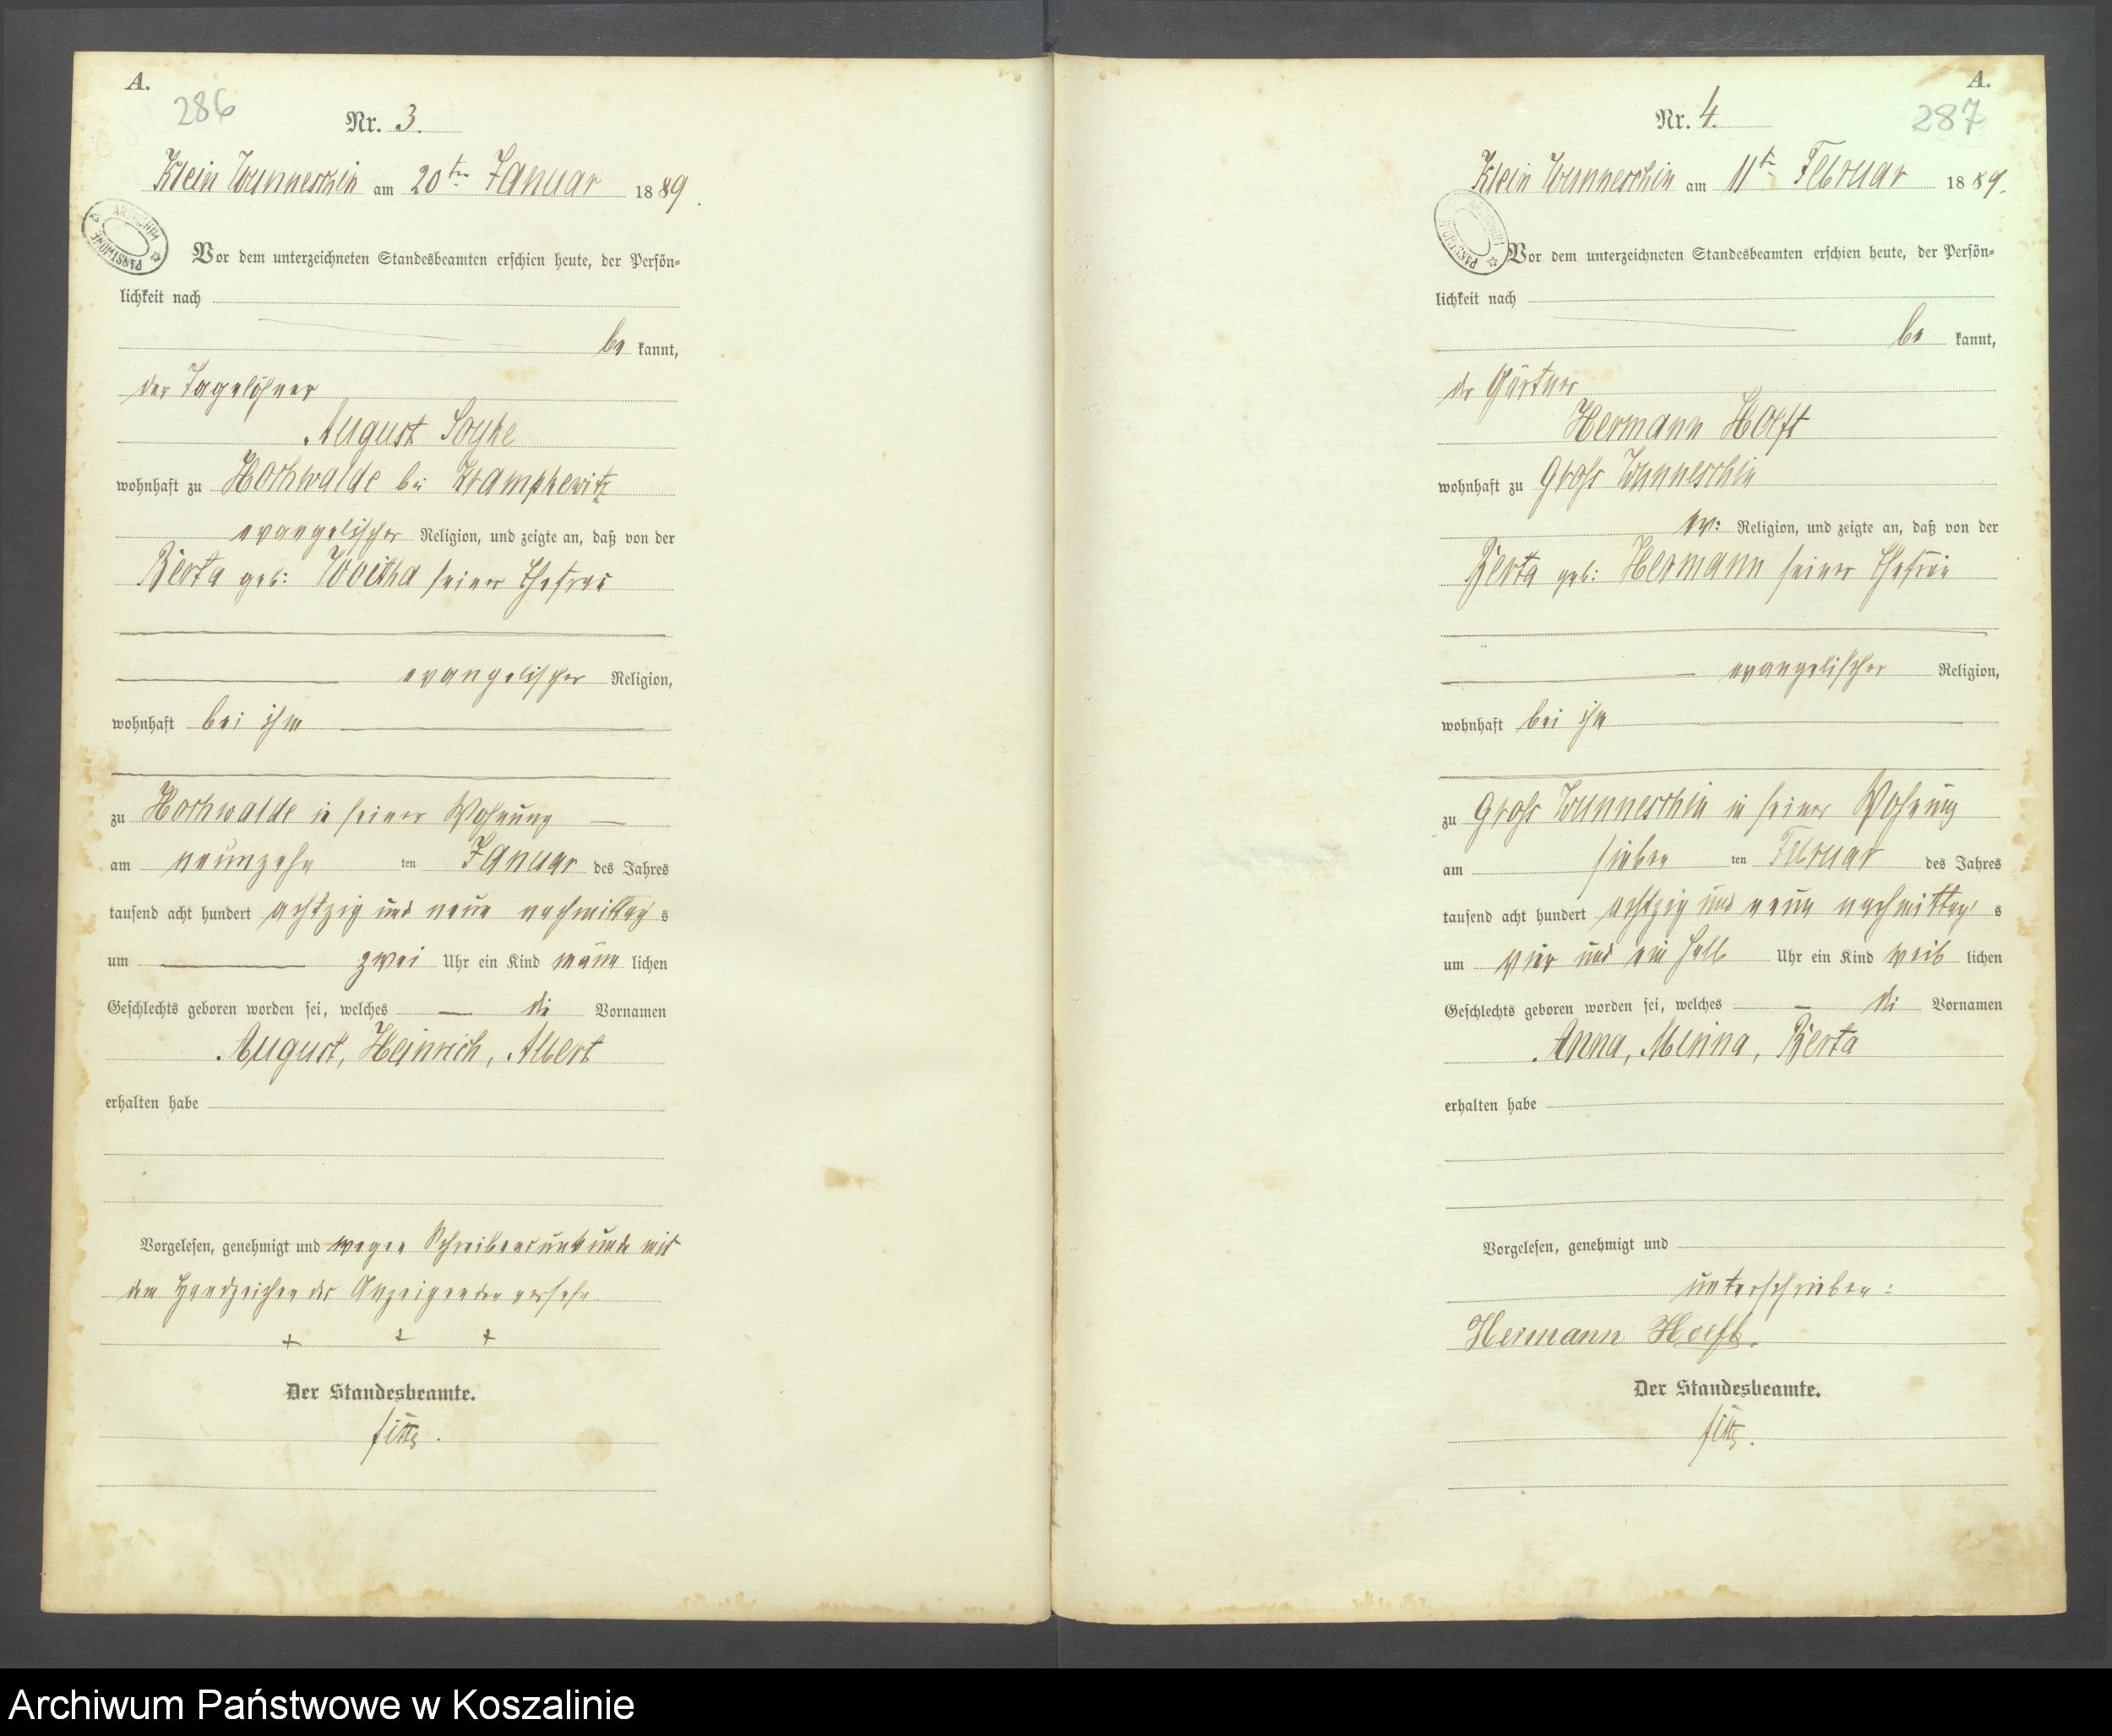 A.
286
Nr. 3.
Klein Wunneschin am 20ten Januar 1889.
ARCHIWUM PAŃSTWOWE
Vor dem unterzeichneten Standesbeamten erschien heute, der Persön-
lichkeit nach
be kannt,
der Tagelöhner
August Soyke
wohnhaft zu Hochwalde bei Krampkewitz
evangelischer Religion, und zeigte an, daß von der
Berta geb: Woitha seiner Ehefrau
evangelischer Religion,
wohnhaft bei ihm
zu Hochwalde in seiner Wohnung
am neunzehn ten Januar des Jahres
tausend acht hundert achtzig und neun nachmittag s
um zwei Uhr ein Kind männ lichen
Geschlechts geboren worden sei, welches die Vornamen
August, Heinrich, Albert
erhalten habe
Vorgelesen, genehmigt und wegen Schreibensunkunde mit
dem Handzeichen des Anzeigenden versehn.
+ + +
Der Standesbeamte.
A.
287
Nr. 4.
Klein Wunneschin am 11te Februar 1889.
ARCHIWUM PAŃSTWOWE
Vor dem unterzeichneten Standesbeamten erschien heute, der Persön-
lichkeit nach
be kannt,
der Gärtner
Hermann Hoeft
wohnhaft zu Gross Wunneschin
ev: Religion, und zeigte an, daß von der
Berta geb: Hermann seiner Ehefrau
evangelischer Religion,
wohnhaft bei ihm
zu Gross Wunneschin in seiner Wohnung
am sieben ten Februar des Jahres
tausend acht hundert achtzig und neun nachmittag s
um vier und ein halb Uhr ein Kind weib lichen
Geschlechts geboren worden sei, welches die Vornamen
Anna, Minna, Berta
erhalten habe
Vorgelesen, genehmigt und
unterschrieben:
Hermann Hoeft.
Der Standesbeamte.
Archiwum Państwowe w Koszalinie